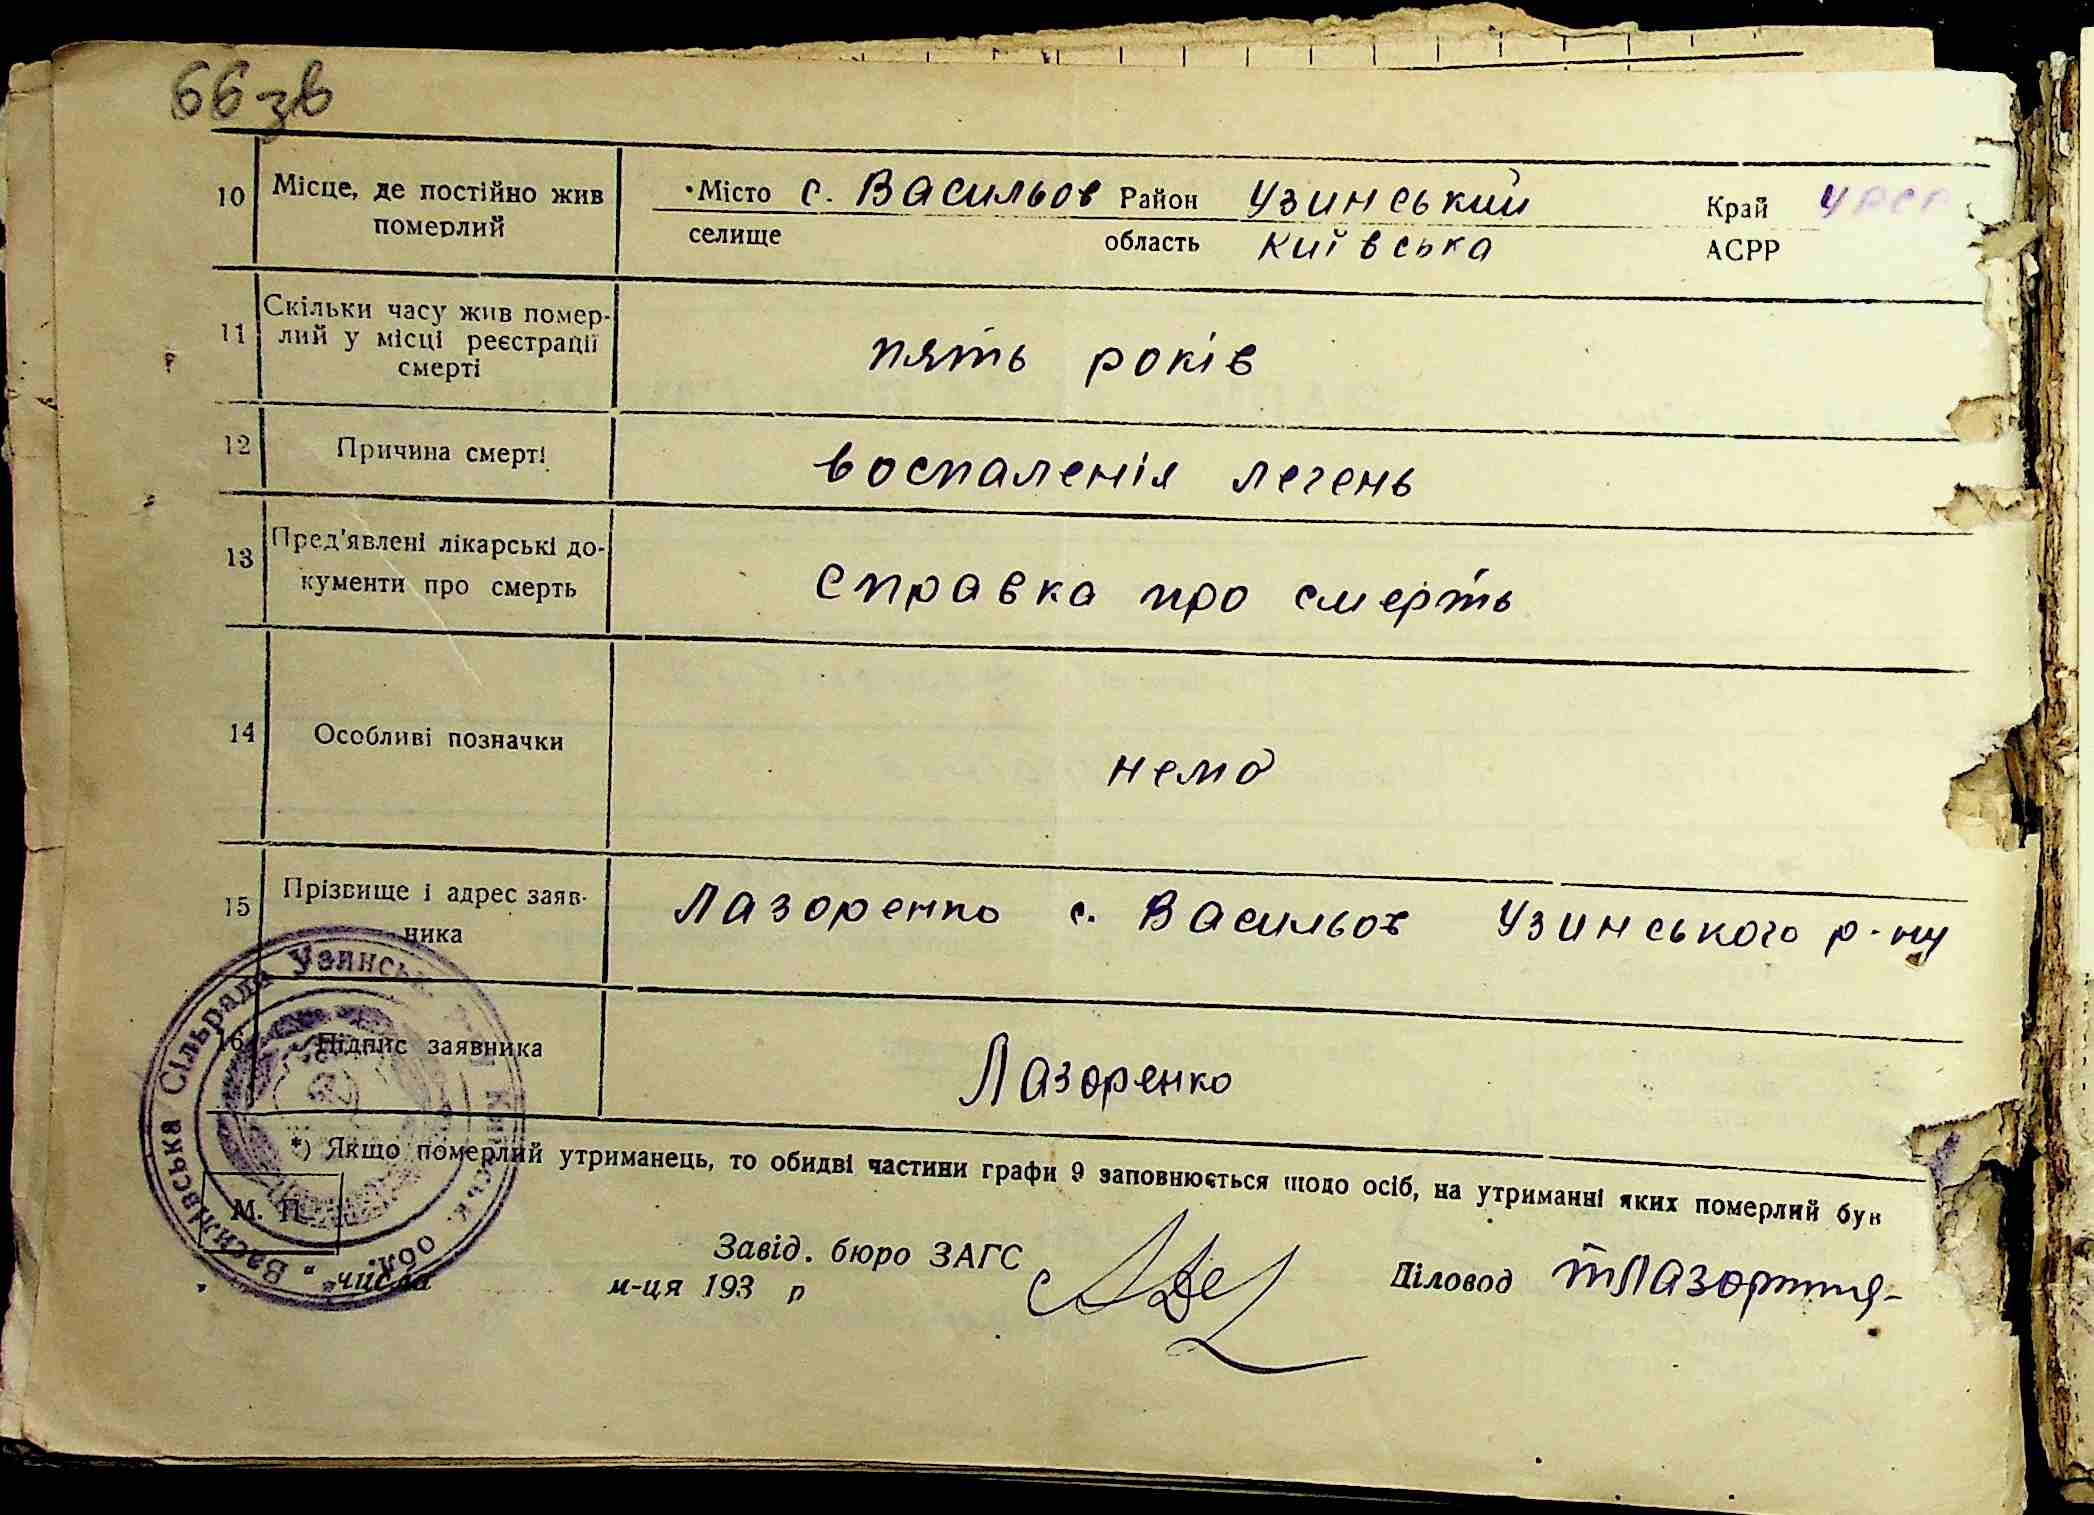 66 зв
10 Місце, де постійно жив померлий
Місто с. Васильов Район Узинський Край УРСР
селище область Київська АСРР
11 Скільки часу жив помер-
лий у місці реєстрації
смерті
пять років
12 Причина смерті
воспаленія легень
13 Пред'явлені лікарські до-
кументи про смерть
справка про смерть
14 Особливі позначки
нема
15 Прізвище і адрес заяв-
ника
Лазоренко с. Васильов Узинського р-ну
16 Підпис заявника
Лазоренко
*) Якщо померлий утриманець, то обидві частини графи 9 заповнюється щодо осіб, на утриманні яких померлий був
М. П.
Завід. бюро ЗАГС Діловод
" " числа м-ця 193 р
Василівська Сільрада Узинськ. Київськ. обл.